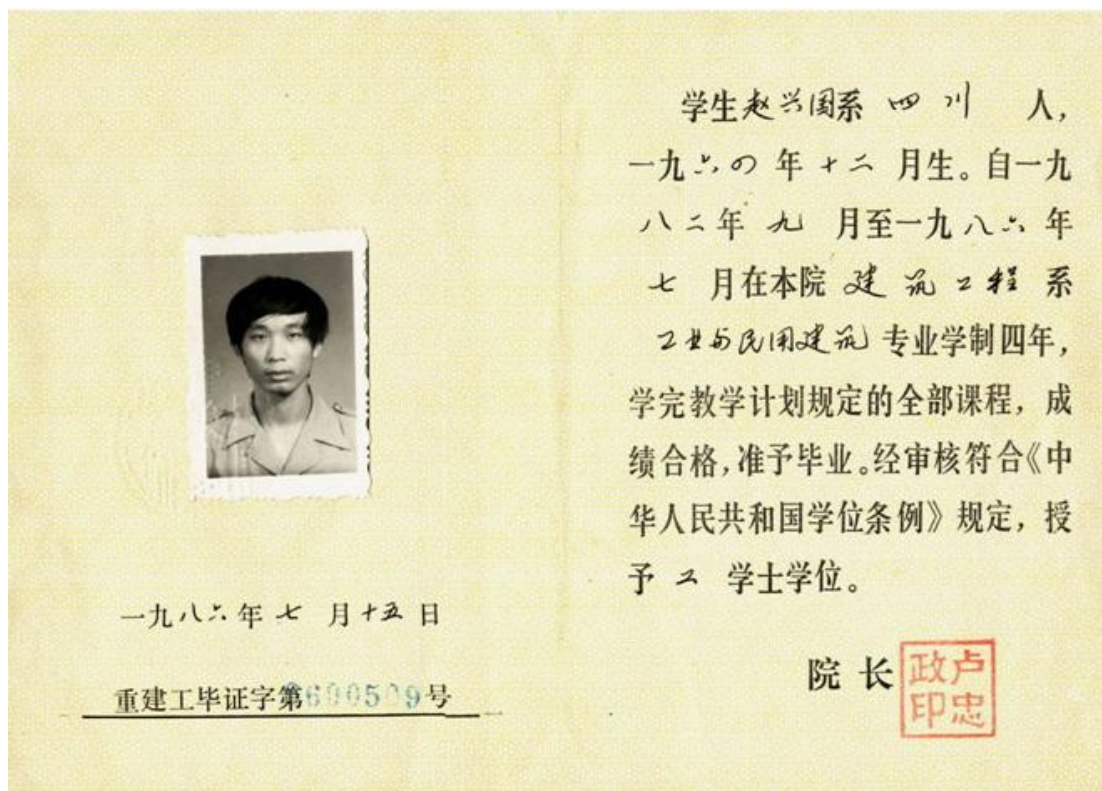 一九八六年七月十五日
重建工毕证字第8600509号
学生赵兴国系四川人，
一九六四年十二月生。自一九
八二年九月至一九八六年
七月在本院建筑工程系
工业与民用建筑专业学制四年，
学完教学计划规定的全部课程，成
绩合格，准予毕业。经审核符合《中
华人民共和国学位条例》规定，授
予工学士学位。
院长
卢忠政印